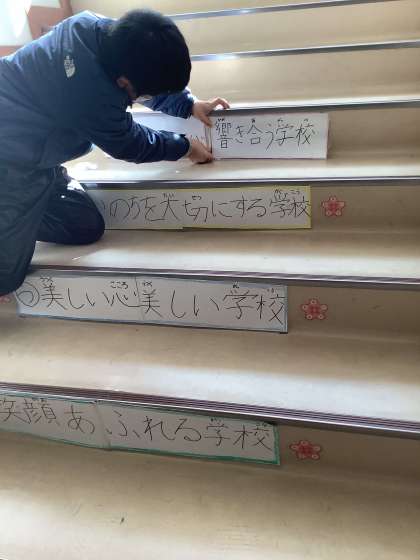 響き合う学校
のちを大切にする学校
美しい心美しい学校
笑顔あふれる学校